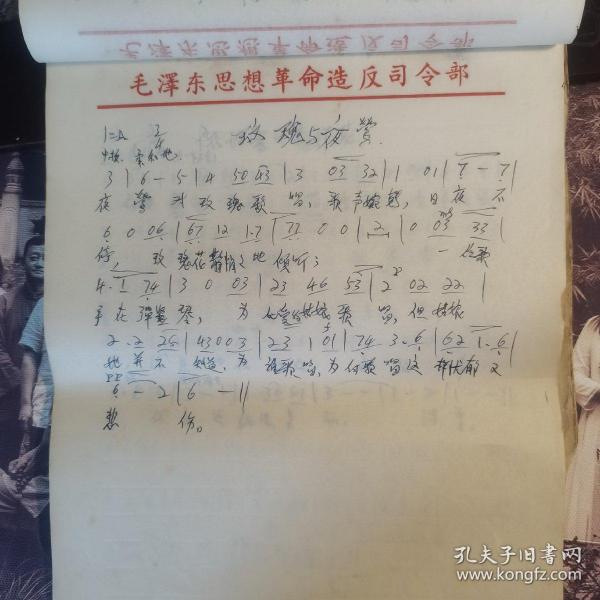 毛澤东思想革命造反司令部
玫瑰与夜鶯
1=A 3/4
中板 柔和地
3 | 6 - 5 | 4 50 43 | 3 03 32 | 1 01 | 7 - 7 |
夜 鶯 对 玫 瑰 歌 唱, 歌声婉转, 日 夜 不
6 0 06 | 67 12 1·7 | 77 0 0 | 2 | 0 03 33 |
停, 玫 瑰花静悄之地 倾听; 一 位歌
4·1 74 | 3 0 03 | 23 46 53 | 2 02 22 |
手在弹竖琴, 为 心爱的姑娘 歌 唱, 但 姑娘
2·2 25 | 43003 | 23 1 01 | 74 3·6 | 62 1·6 |
她并不 知道, 为 谁歌唱, 为何歌 唱这 样忧郁 又
6 - 2 | 6 - ||
悲 伤。
孔夫子旧书网
www.kongfz.com